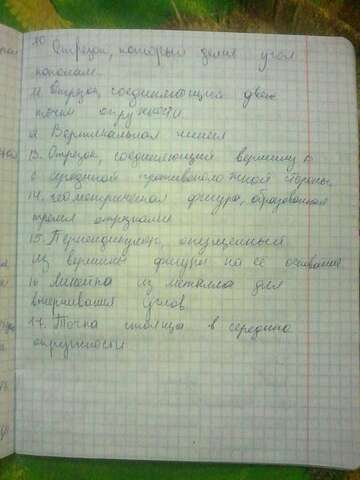 10.
Отрезок, который делит угол
пополам.
11. Отрезок, соединяющий две
точки окружности
12 Вертикальная линия
13. Отрезок, соединяющий вершину
с серединой противоположной стороны.
14. геометрическая фигура, образованная
тремя отрезками
15. Перпендикуляр, опущенный
из вершины фигуры на её основание
16 Линейка из металла для
вычерчивания углов.
17. Точка в середине
окружности.